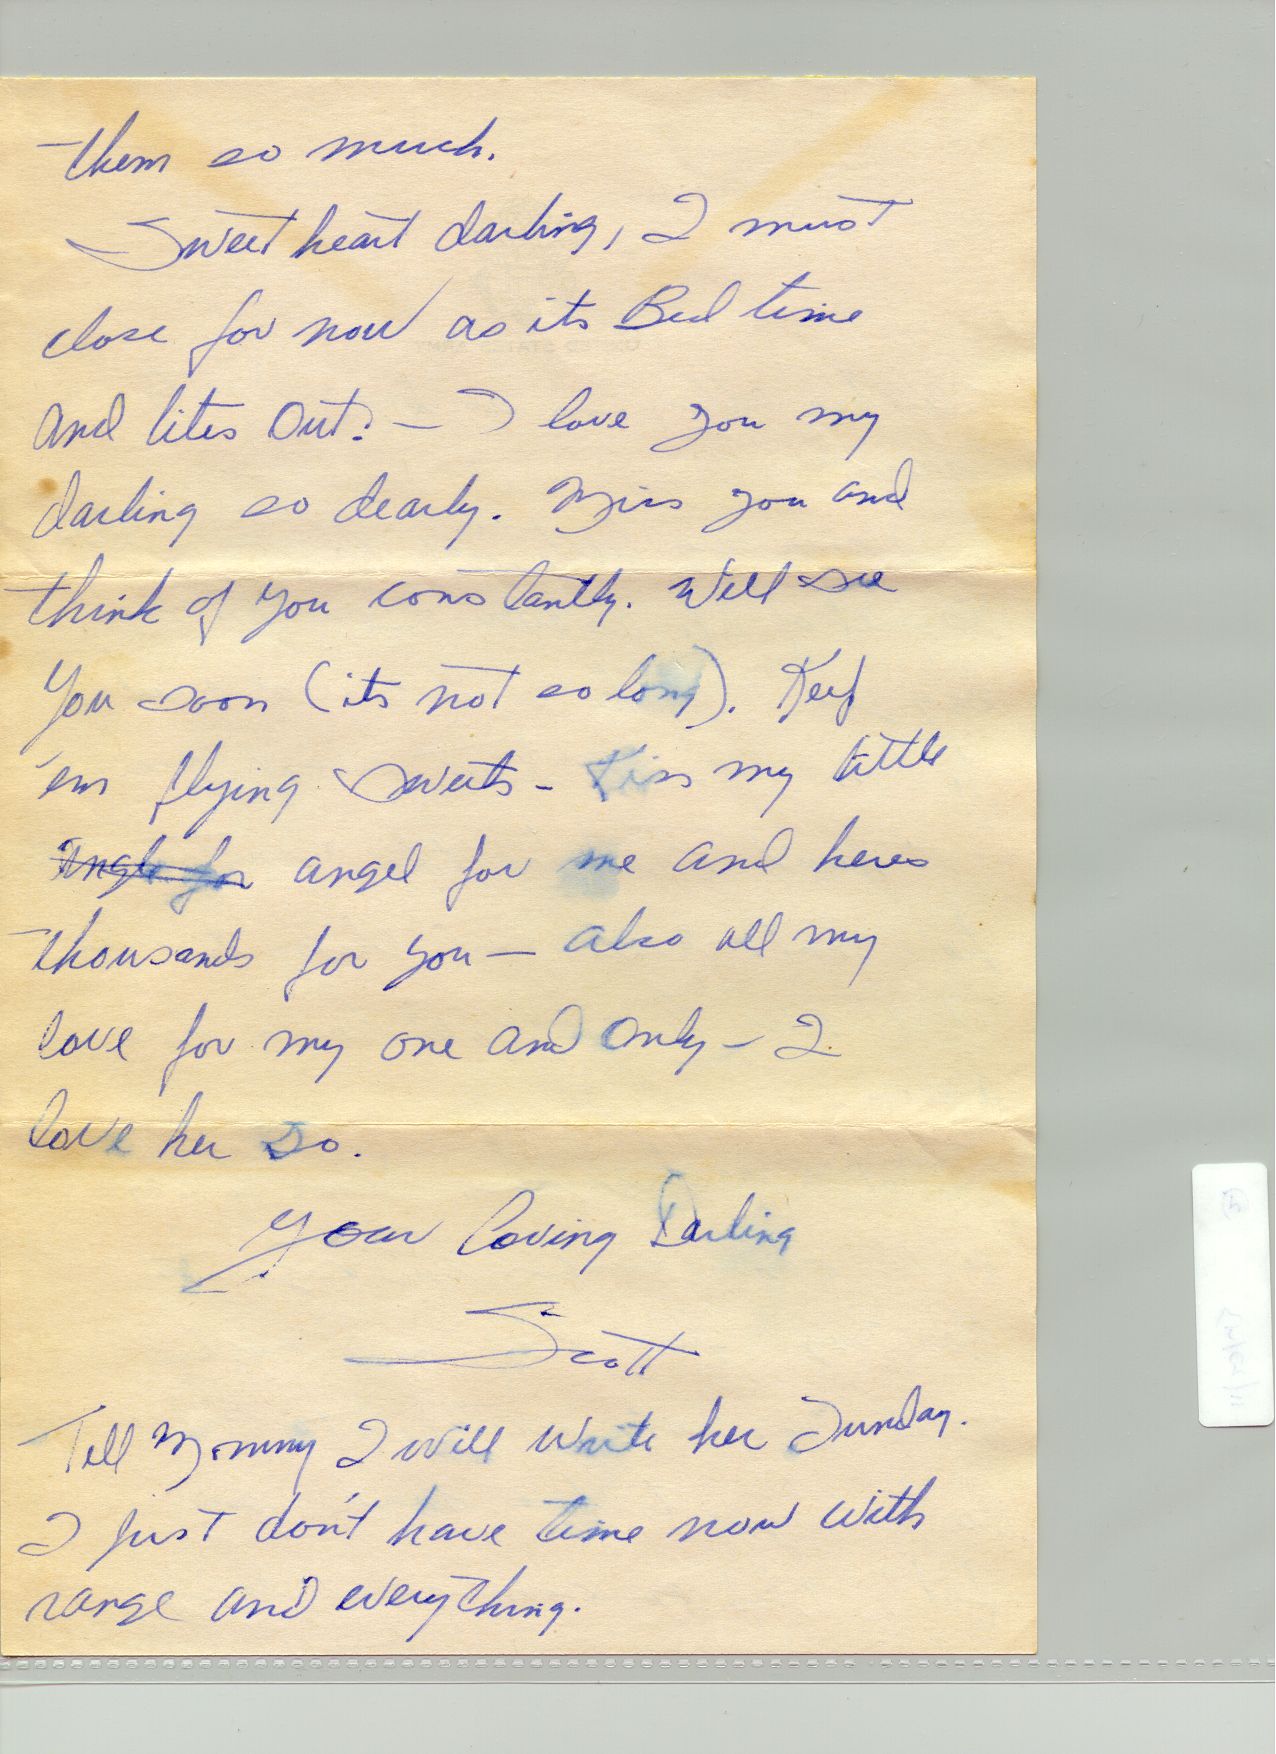 them so much.
Sweet heart darling, I must
close for now as its Bed time
and lites Out! — I love you my
darling so dearly. Miss you and
think of you constantly. Will see
You soon (its not so long). Keep
'em flying sweets - Kiss my little
angle for angel for me and heres
thousands for you — also all my
love for my one and Only - I
love her so.
Your loving Darling
Scott
Tell Mommy I will write her Sunday.
I just don't have time now with
range and everything.